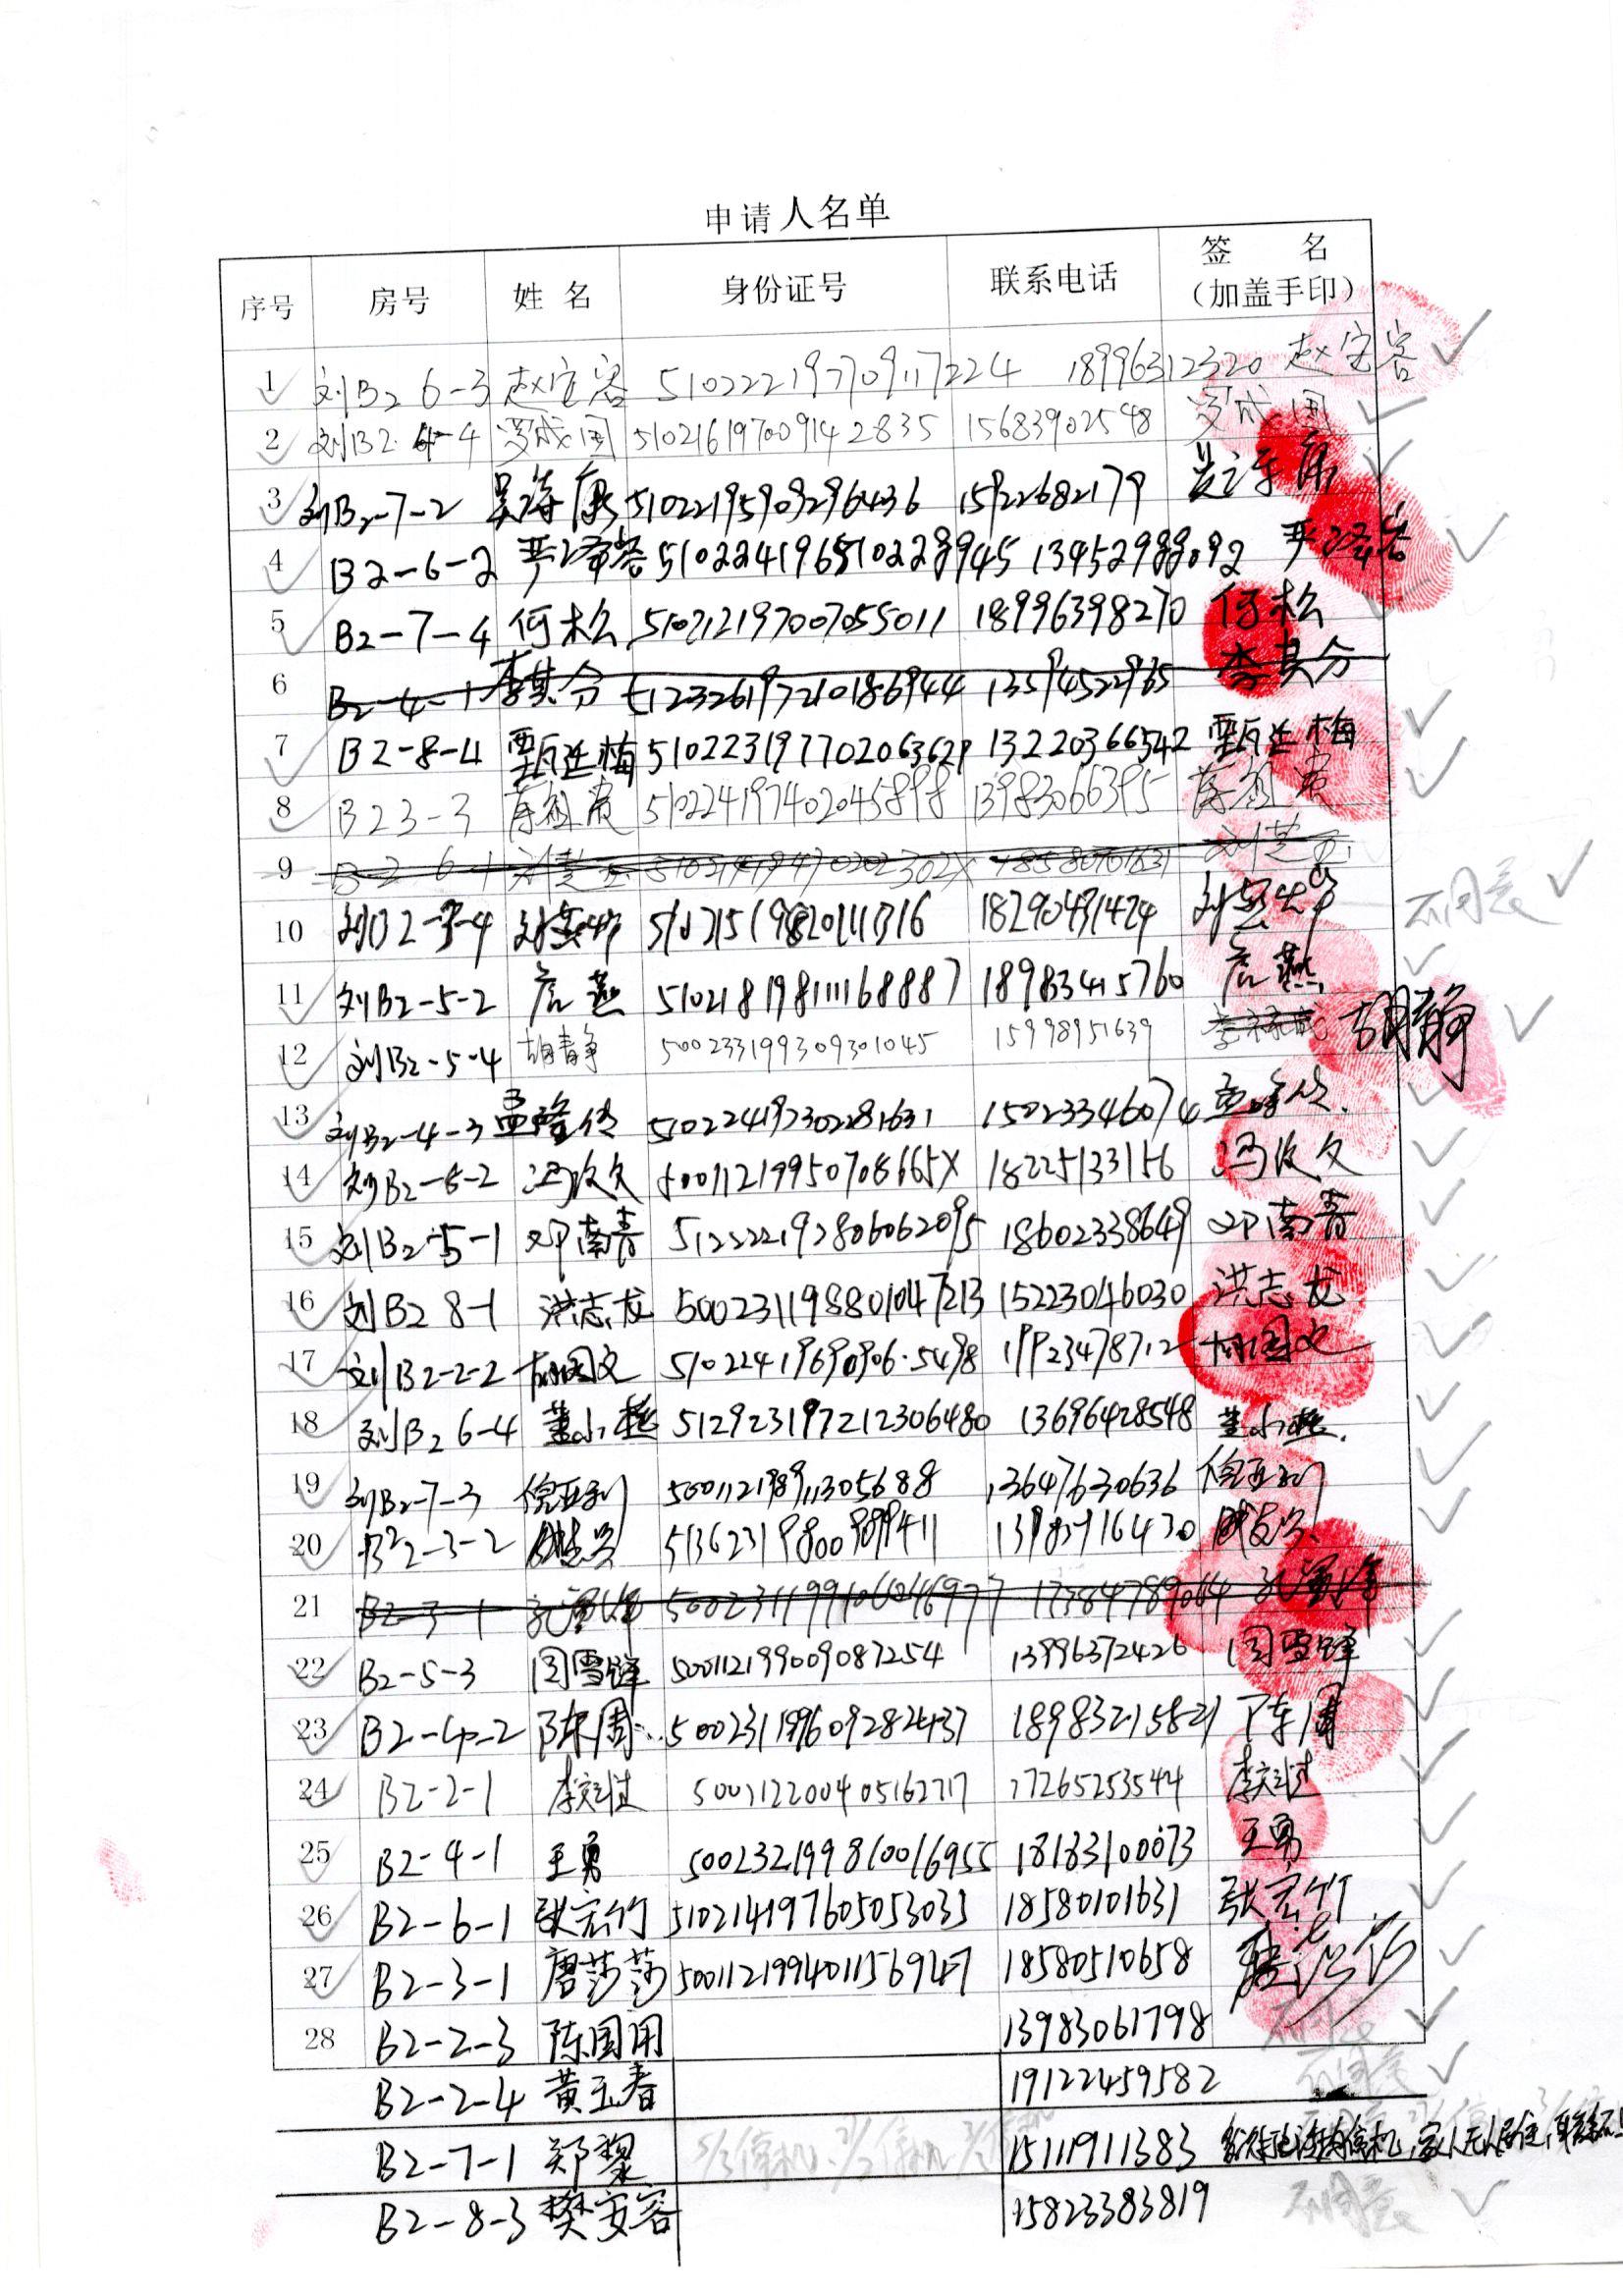 申请人名单
序号 房号 姓名 身份证号 联系电话 签名
（加盖手印）
1 刘B2 6-3 赵宝容 510222197709117224 18996312320 赵宝容
2 刘B2 4-4 罗成国 510216197009142835 15683902548 罗成国
3 刘B2-7-2 康 51022195909296436 15922682179
4 B2-6-2 严泽容 510224196510228945 13452988092 严泽容
5 B2-7-4 何松 510212197007055011 18996398270 何松
6 B2-4-1 李其分 512326197210186944 13594522965 李其分
7 B2-8-4 甄廷梅 510223197702063629 13220366542 甄廷梅
8 B2 3-3 510224197402045898 13983066395
9 B-2 6-1 51021419470202302X 18580101631
10 刘B2-3-4 18290431424 不同意
11 刘B2-5-2 詹燕 510218198111168887 18983415760 詹燕
12 刘B2-5-4 胡静 500233199309301045 15998951639 胡静
13 刘B2-4-3 孟隆传 510224197302281631 15023346074
14 刘B2-8-2 冯收文 50011219950708665X 18225133156 冯收文
15 刘B2-5-1 邓南青 512222192806062095 18602338649 邓南青
16 刘B2 8-1 洪志龙 500231198801047213 15223046030 洪志龙
17 刘B2-2-2 胡国文 510224196909065498 19923478712 胡国文
18 刘B2 6-4 董小 512923197212306480 13696428548 董小
19 刘B2-7-3 500112198911305688 13647630636
20 B2-3-2 13983916430
21 B2-3-1 17384789064
22 B2-5-3 周雪锋 500112199009087254 13996372426 周雪锋
23 B2-4-2 陈周 500231199609282437 18983215821 陈周
24 B2-2-1 500112200405162717 17265253544
25 B2-4-1 王勇 500232199810016955 18183100073 王勇
26 B2-6-1 张宏竹 510214197605053033 18580101631 张宏竹
27 B2-3-1 唐莎莎 500112199401156947 18580510658 唐莎莎
28 B2-2-3 陈国用 13983061798 不同意
B2-2-4 黄玉春 19122459582 不同意
B2-7-1 郑黎 停机 停机 15111911383
B2-8-3 樊安容 15823383819 不同意